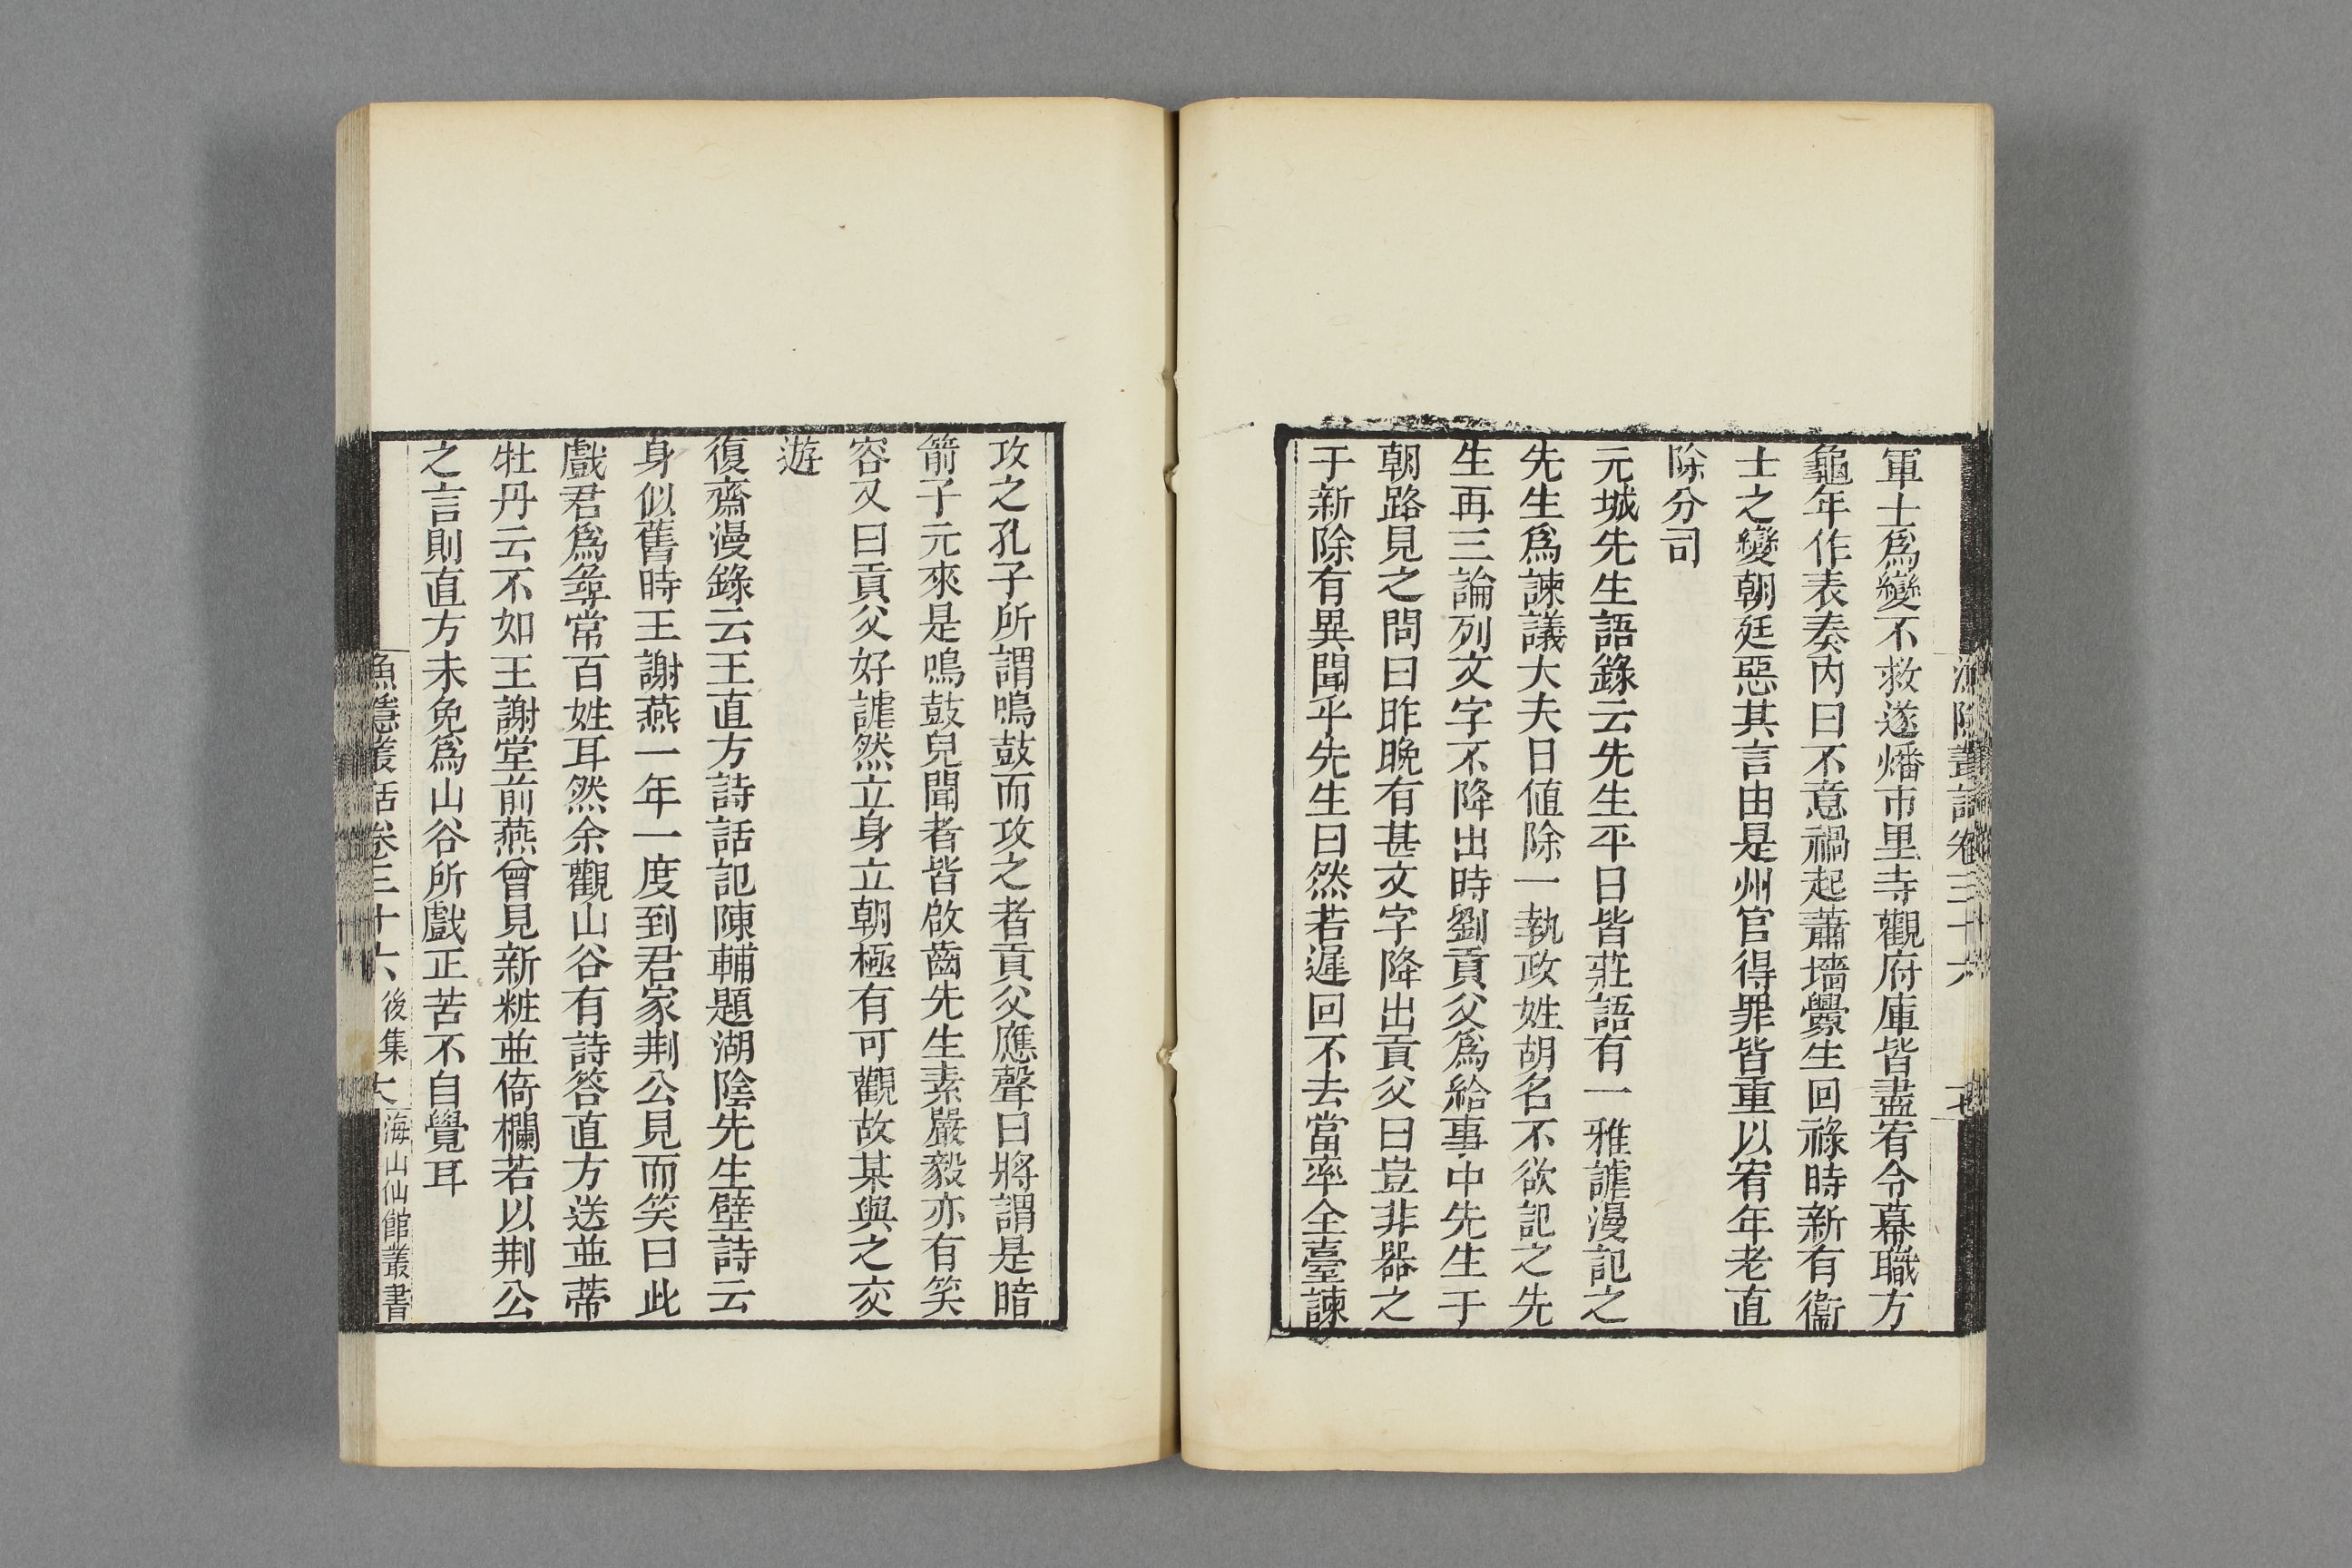 漁隱叢話卷三十六
十七
軍士爲變不救遂燔市里寺觀府庫皆盡宥令幕職方
龜年作表奏内曰不意禍起蕭墻釁生回祿時新有衞
士之變朝廷惡其言由是州官得罪皆重以宥年老直
除分司
元城先生語錄云先生平日皆莊語有一雅謔漫記之
先生爲諫議大夫日値除一執政姓胡名不欲記之先
生再三論列文字不降出時劉貢父爲給事中先生于
朝路見之問曰昨晚有甚文字降出貢父曰豈非器之
于新除有異聞乎先生曰然若遲回不去當率全臺諫
攻之孔子所謂鳴鼓而攻之者貢父應聲曰將謂是暗
箭子元來是鳴鼓兒聞者皆啟齒先生素嚴毅亦有笑
容又曰貢父好謔然立身立朝極有可觀故某與之交
遊
復齋漫錄云王直方詩話記陳輔題湖陰先生壁詩云
身似舊時王謝燕一年一度到君家荆公見而笑曰此
戲君爲尋常百姓耳然余觀山谷有詩答直方送並蒂
牡丹云不如王謝堂前燕曾見新粧並倚欄若以荆公
之言則直方未免爲山谷所戲正苦不自覺耳
漁隱叢話卷三十六 後集 大
海山仙館叢書